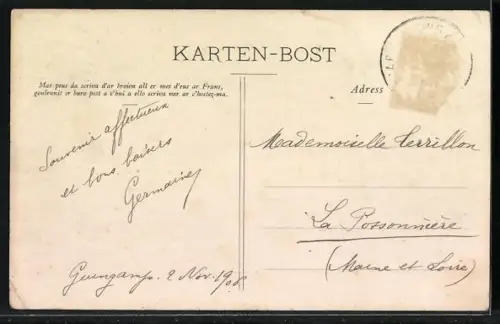 KARTEN-BOST
Mar peus da scriva d'ar broiou all er mes d'eus ar Frans,
goulennit er buro post a c'hui a ello scriva war ar c'hostez-ma.
Adress
Souvenir affectueux
et bons baisers
Germaine
Guingamp. 2 Nov. 1908
Mademoiselle Terrillon
La Possonnière
(Maine et Loire)